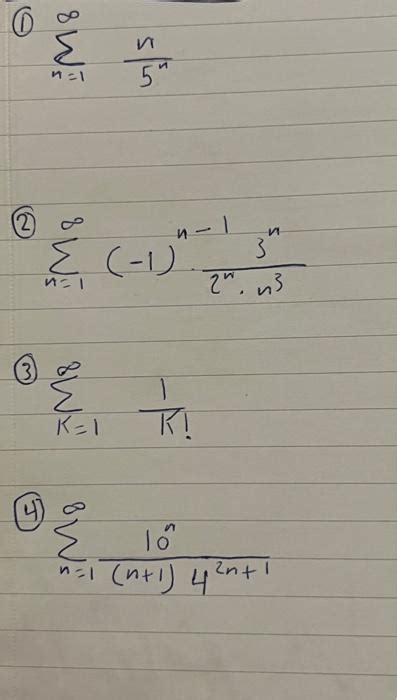 ① ∞∑n=1 n/5^n
② ∞∑n=1 (-1)^n-1 · 3^n/2^n · n^3
③ ∞∑K=1 1/K!
④ ∞∑n=1 10^n/(n+1) 4^2n+1